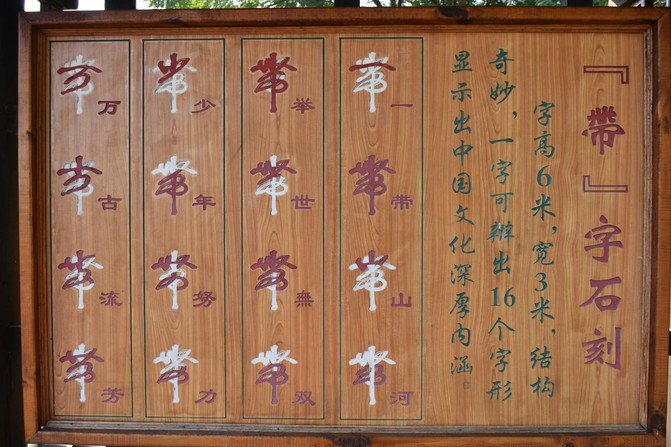 『帶』字石刻
字高6米，宽3米，结构
奇妙，一字可辨出16个字形
显示出中国文化深厚内涵。
一带山河
举世無双
少年努力
万古流芳